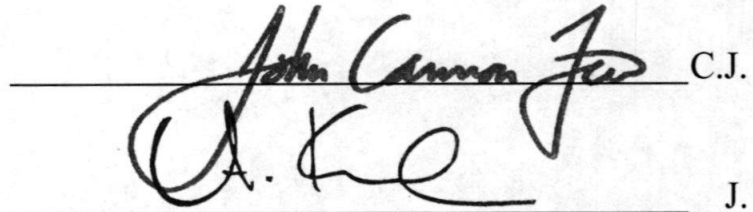 John Cannon Few C.J.
A. K J.